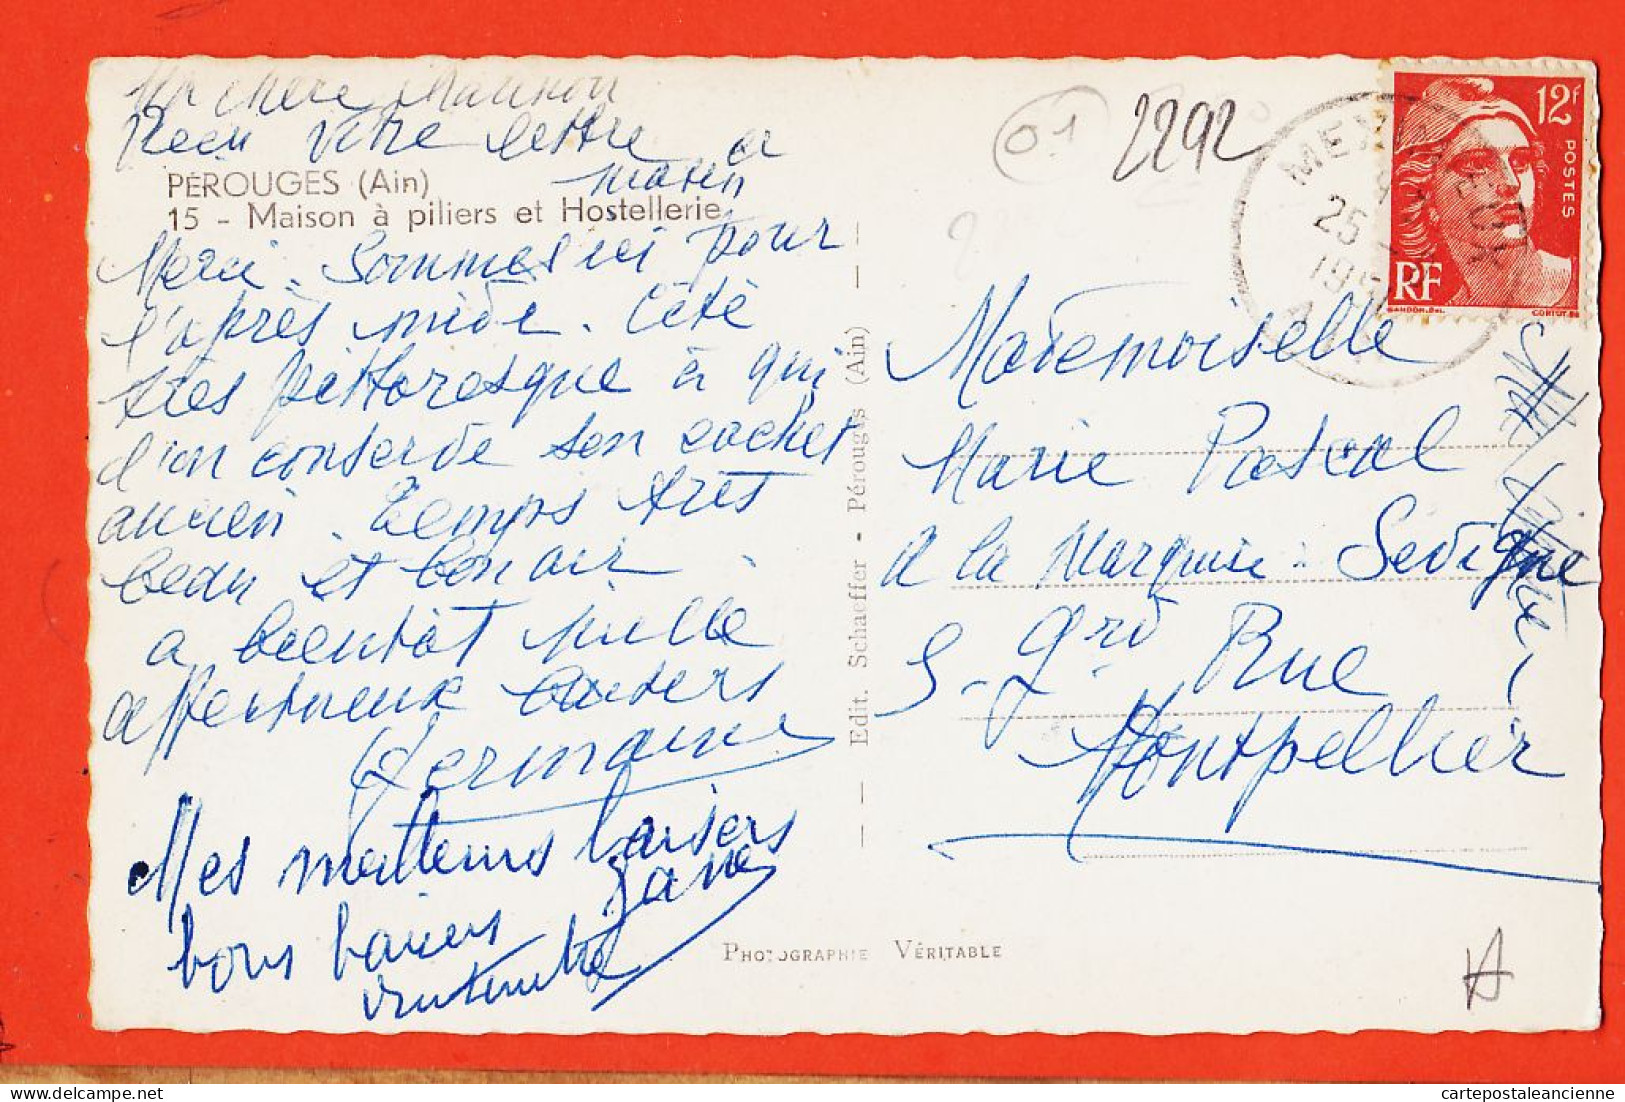 Ma chère Manon
Recu votre lettre ce
matin
PÉROUGES (Ain)
15 - Maison à piliers et Hostellerie
Merci. Sommes ici pour
l'après midi. Cité
très pittoresque à qui
l'on conserve son cachet
ancien. Temps très
beau et bon air.
a bientôt mille
affectueux baisers
Germaine
Mes meilleurs baisers
Jane
bons baisers
Edit. Schaeffer - Pérouges (Ain)
PHOTOGRAPHIE VÉRITABLE
01
2292
MEXIMIEUX
25
195
AIN
12f
POSTES
RF
GANDON.DEL.
CORTOT.SC
Mademoiselle
Marie Pascal
A la Marquise. Sévigné
5 - Grd Rue
Montpellier
A
cartepostaleancienne